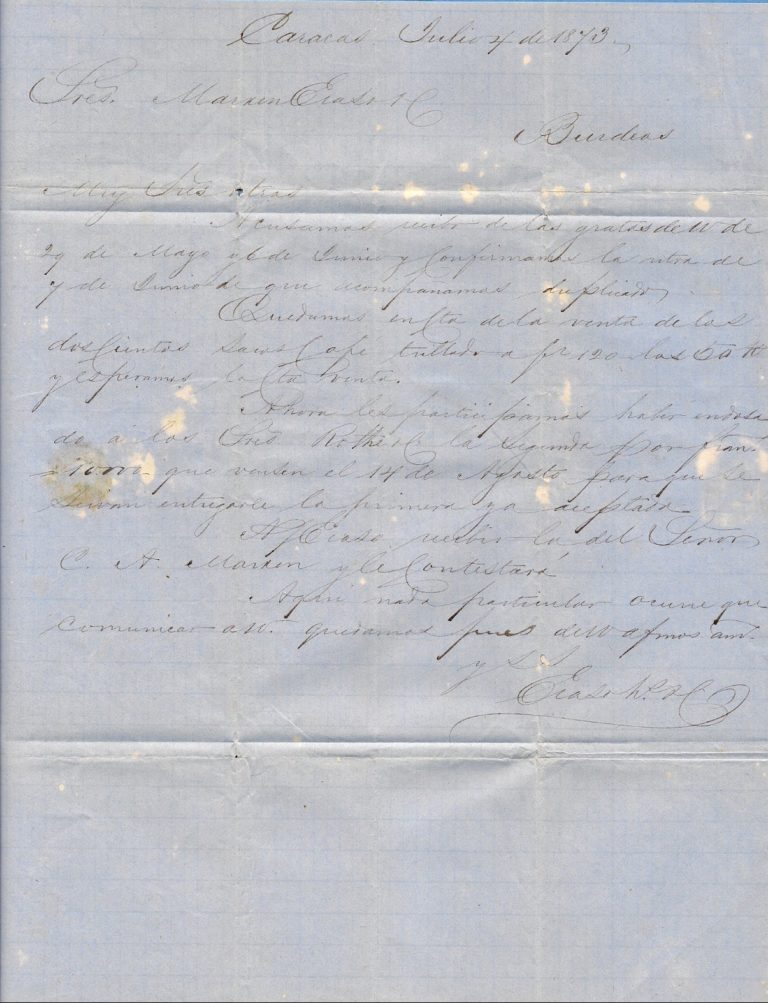 Caracas Julio 4 de 1873.
Sres. Marxen Eraso & C
Burdeos
Muy Sres ntros
Acusamos recibo de las gratas de W de
29 de Mayo y 6 de Junio y Confirmamos la ntra de
7 de Junio de que acompañamos duplicado,
Quedamos en Cta de la venta de los
dos Cientos Sacos Café trillado a fr 120 los 50 K
y esperamos la Cta Venta.
Ahora les participamos haber endosa
do á los Sres Rothe & C la Segunda por fran.
10000 que vensen el 14 de Agosto para que se
sirvan entregarle la primera ya aceptada
Eraso recibió la del Señor
C. A. Marxen y le Contestará
Aquí nada particular ocurre que
comunicar a W. quedamos pues de W afmos am.
y S S
Eraso Hs. & C